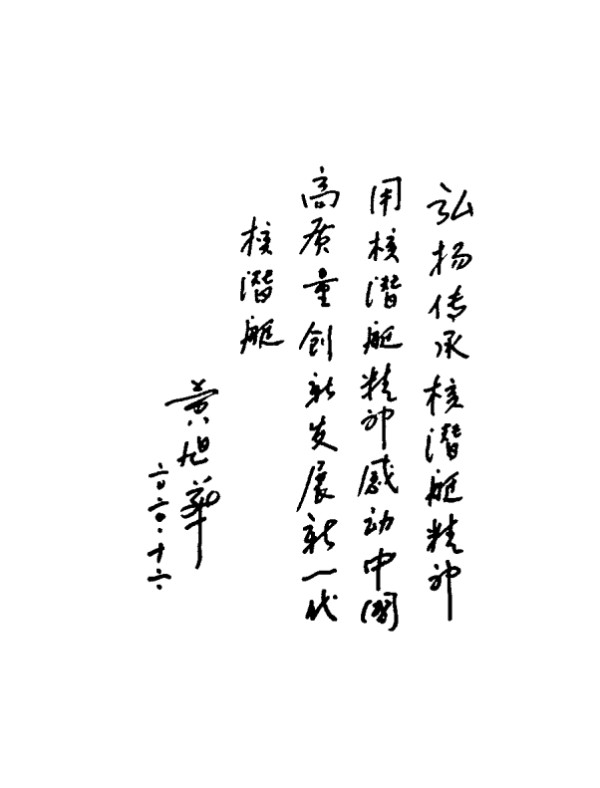 弘扬传承核潜艇精神
用核潜艇精神感动中国
高质量创新发展新一代
核潜艇
黄旭华
二〇二〇·十二·